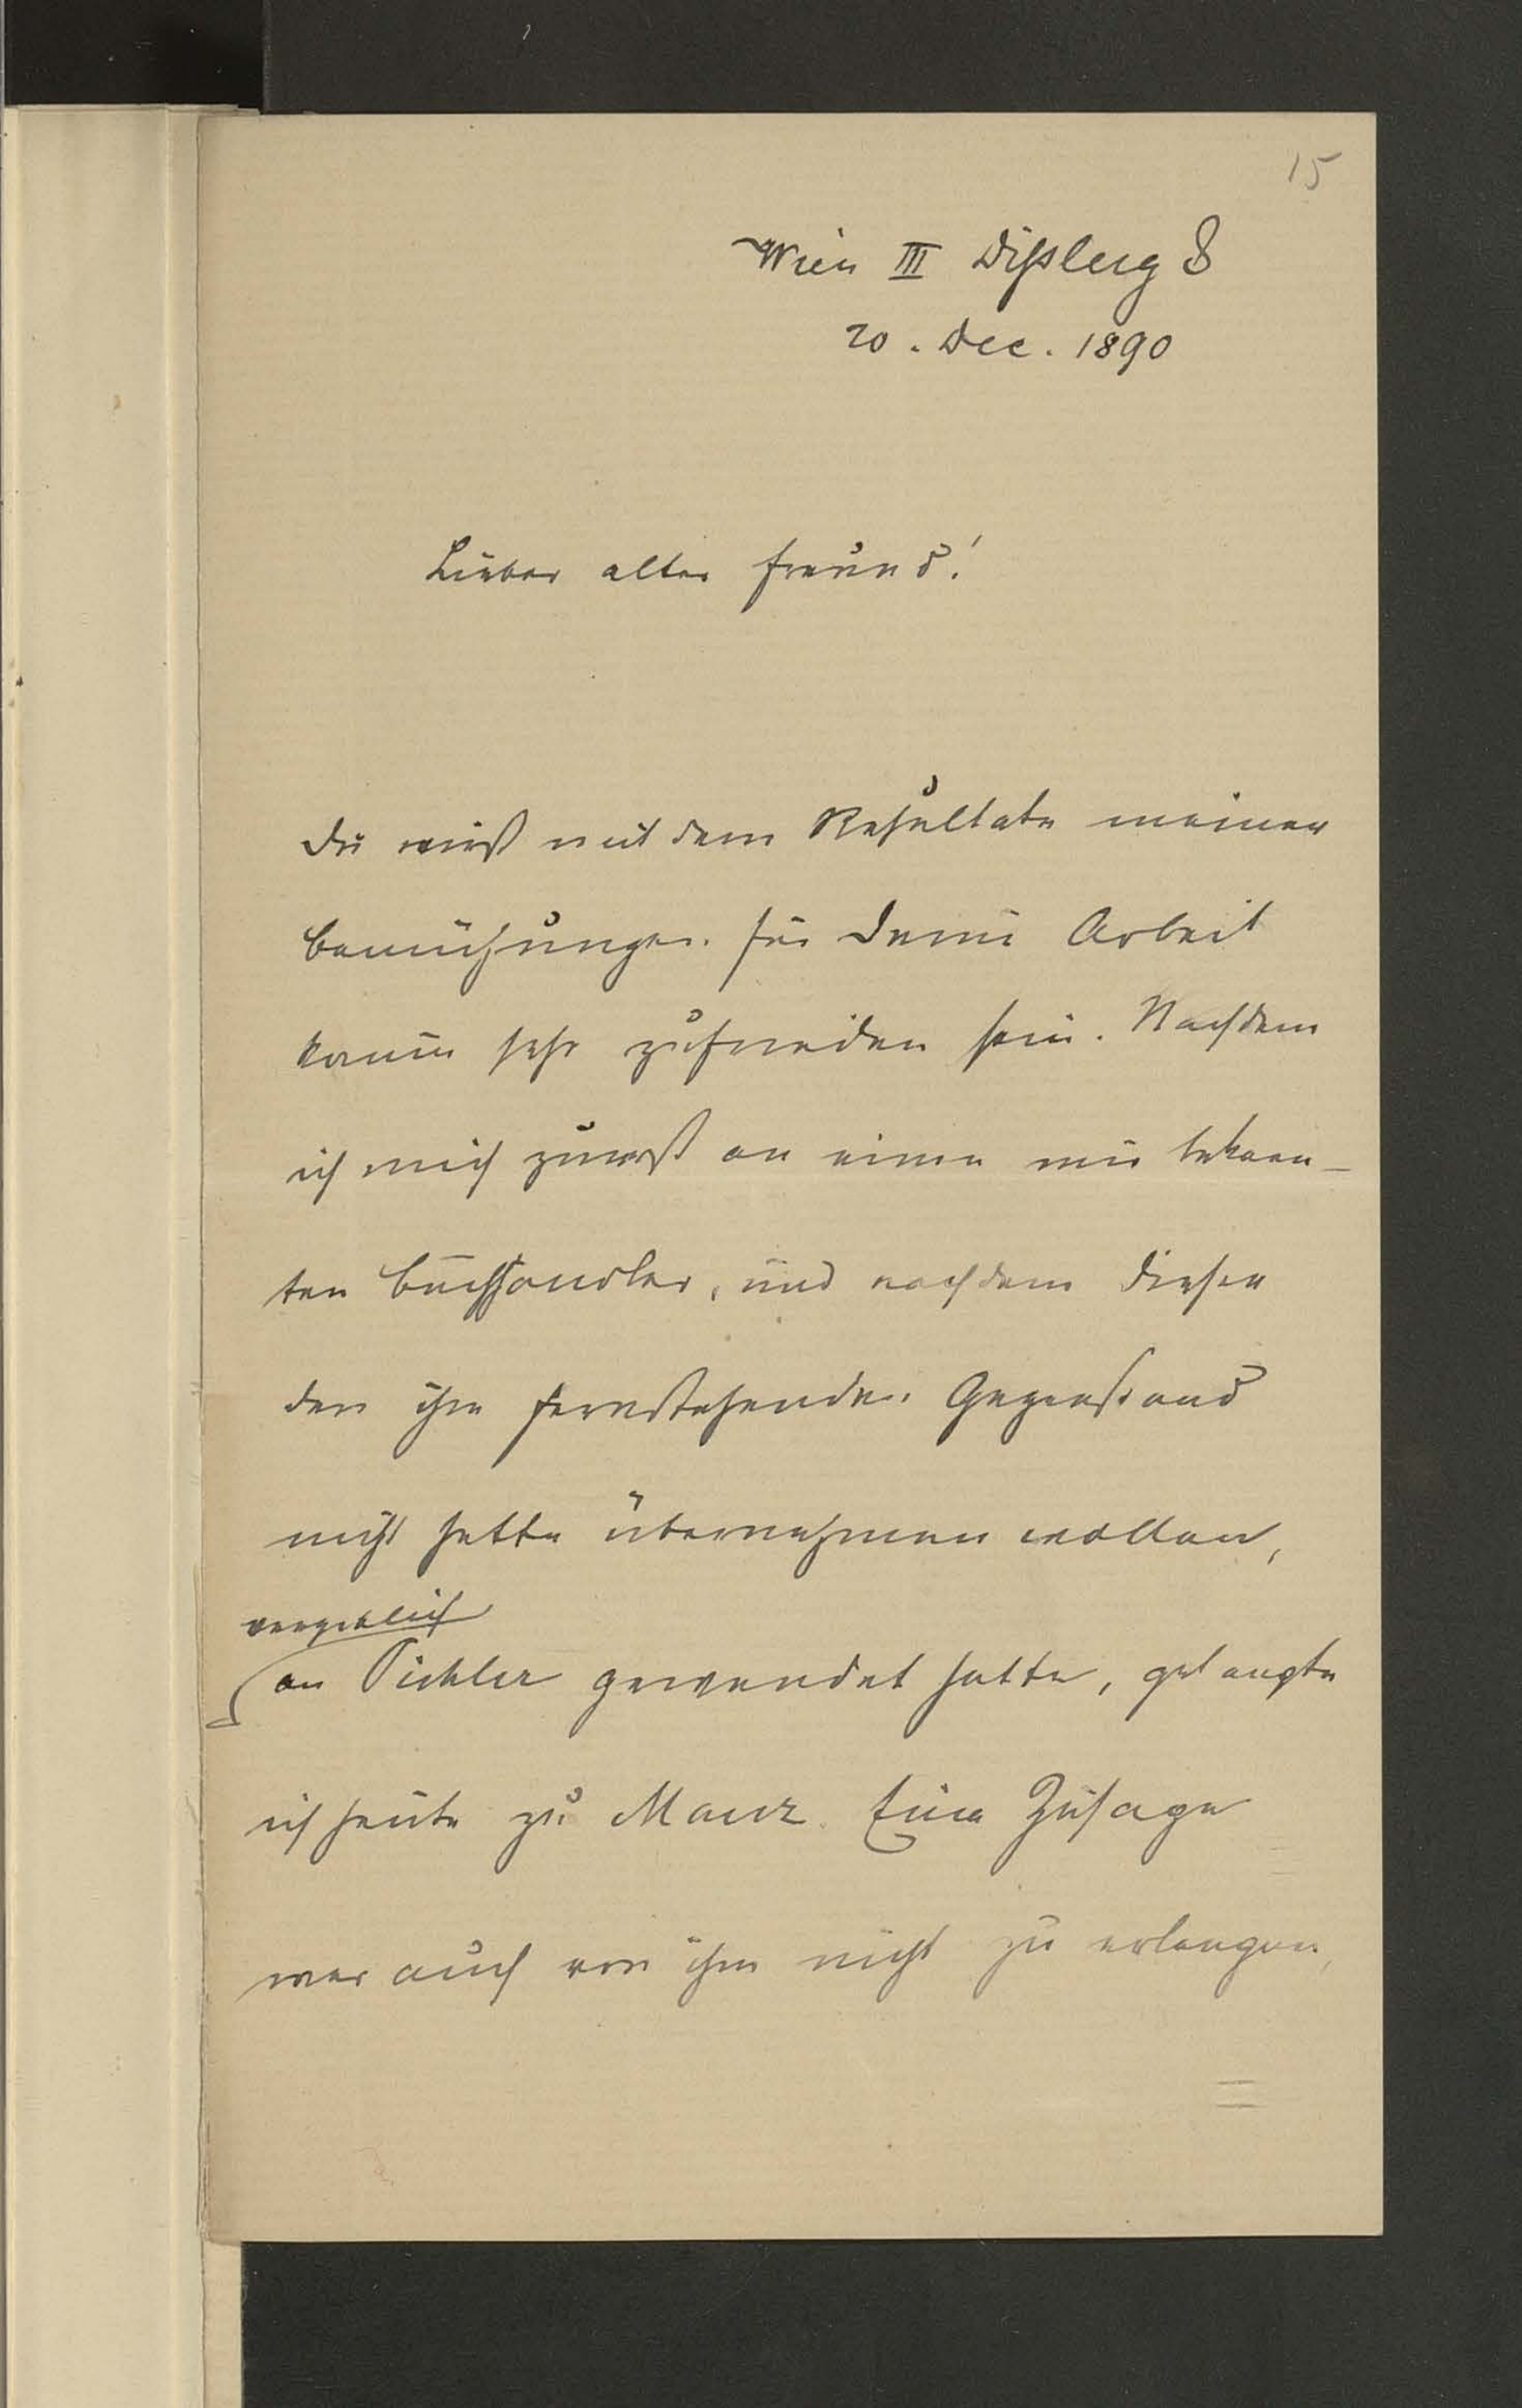 15
Wien III Dißlerg 8
20. Dec. 1890
Lieber alter Freund!
Du wirst mit dem Resultate meiner
Bemühungen für Deine Arbeit
kaum sehr zufrieden sein. Nachdem
ich mich zuerst an einen mir bekann-
ten Buchhändler, und nachdem dieser
den ihm fernstehenden Gegenstand
nicht hatte übernehmen wollen,
vergeblich
an Pichler gewendet hatte, gelangte
ich heute zu Manz. Eine Zusage
war auch von ihm nicht zu erlangen,